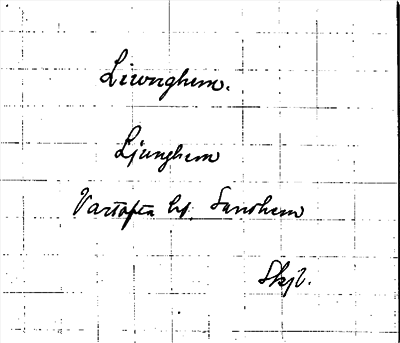 Liwnghem.
Ljunghem
Vartofta hd. Sandhem
Skjl.